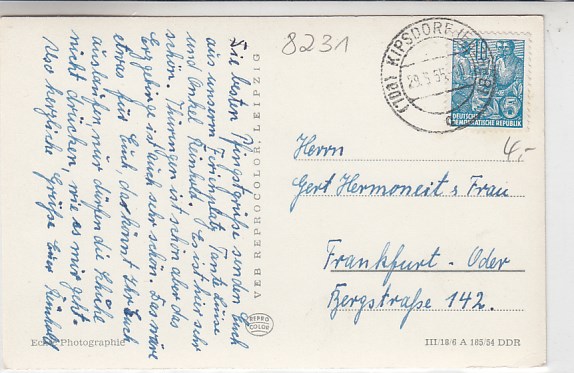 8231
Die besten Pfingstgrüße senden Euch
aus unserm Ferienplatz Tante Luise
und Onkel Reinhold. Es ist hier sehr
schön. Thüringen ist schön aber das
Erzgebirge ist auch sehr schön. Das wäre
etwas für Euch, da könnt Ihr Euch
auslaufen, nur dürfen die Schuhe
nicht drücken, wie es mir geht.
Also herzliche Grüße Euer Reinhold
VEB REPROCOLOR LEIPZIG
REPRO
COLOR
Echte Photographie
(10a) KIPSDORF
29.5.55
10
5
DEUTSCHE
DEMOKRATISCHE REPUBLIK
4,-
Herrn
Gert Hermoneit u Frau
Frankfurt - Oder
Bergstraße 142.
III/18/6 A 185/54 DDR